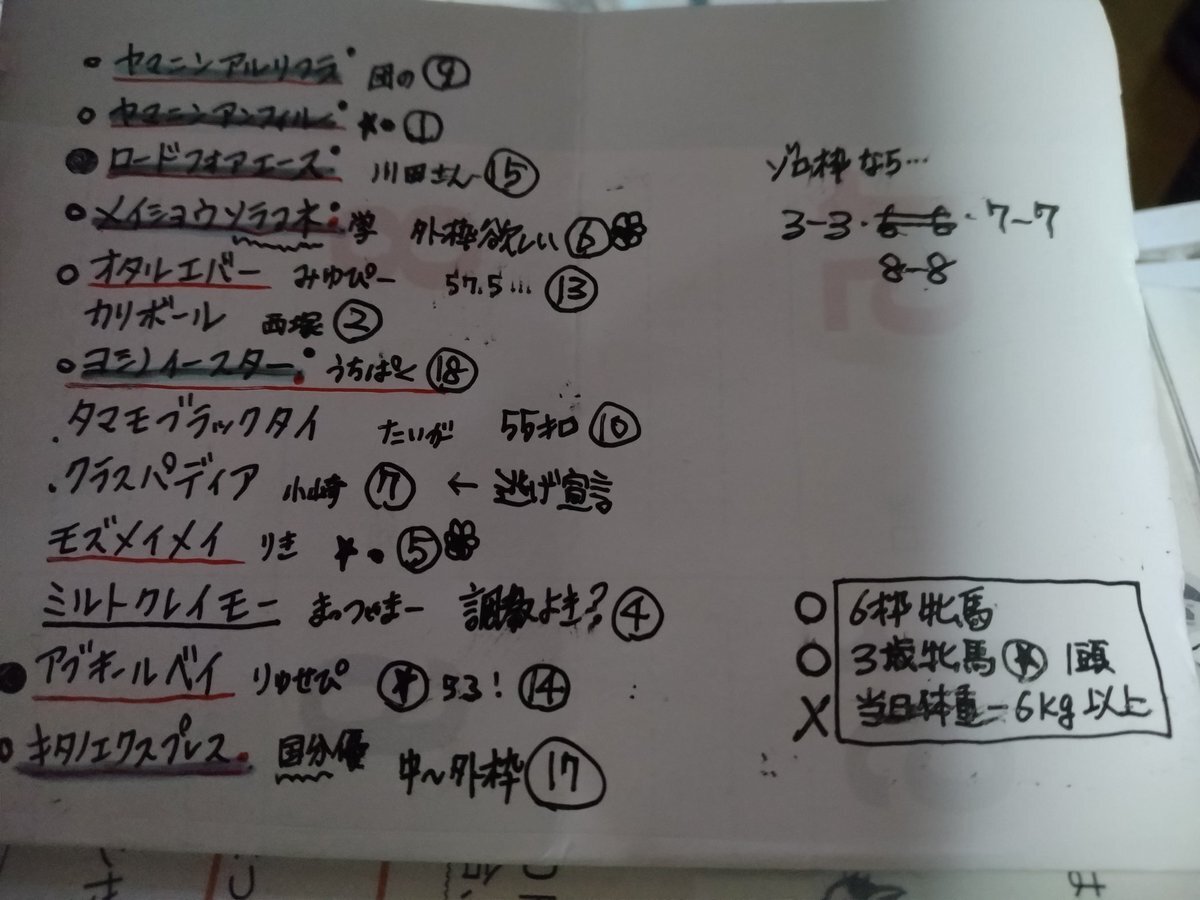 ○ ヤマニンアルリフラ 団の ⑨
○ ヤマニンアンフィル ★● ①
● ロードフォアエース 川田さん ⑮
○ メイショウソラフネ 学 外枠欲しい ⑥
○ オタルエバー みゆぴー 57.5… ⑬
カリボール 西塚 ②
○ ヨシノイースター うちぱく ⑱
. タマモブラックタイ たいが 55キロ ⑩
. クラスペディア 小崎 ⑦ ← 逃げ宣言
モズメイメイ りき ★● ⑤
ミルトクレイモー まっつやまー 調教よき? ④
● アブキールベイ りゅせぴ ★ 53! ⑭
○ キタノエクスプレス 国分優 中~外枠 ⑰
ゾロ枠なら…
3-3・6-6・7-7
8-8
○ 6枠牝馬
○ 3歳牝馬 ★ 1頭
X 当日体重-6kg以上